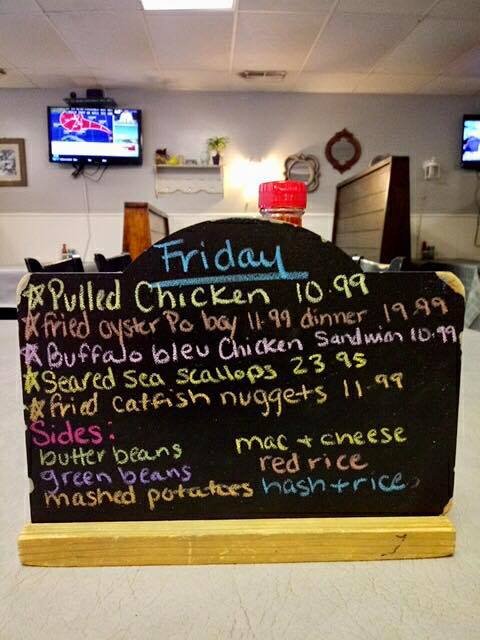 Friday
Pulled Chicken 10.99
fried oyster Po boy 11.99 dinner 19.99
Buffalo bleu Chicken Sandwich 10.99
Seared Sea Scallops 23.95
fried catfish nuggets 11.99
Sides:
butter beans
green beans
mashed potatoes
mac + cheese
red rice
hash + rice